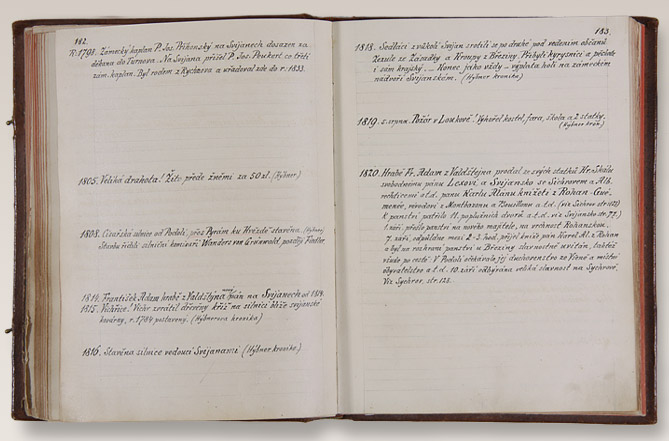 182.
R. 1798. Zámecký kaplan P. Jos. Příhonský na Svijanech dosazen za
děkana do Turnova. Na Svijana přišel P. Jos. Poukert, co třetí
zám. kaplan. Byl rodem z Rychnova a uřadoval zde do r. 1833.
1805. Veliká drahota! Žito přede žněmi za 50 zl. (Hýbner)
1808. Císařská silnice od Podolí, přes Pyrám ku Hvězdě stavěna. (Hýbner)
Stavbu řídili silniční komisaři: Wanders von Grünwald, později Fiedler.
1814. František Adam hrabě z Valdštýna pán na Svijanech od 1814.
1815. Vichřice! Vichr zvrátil dřevěný kříž na silnici blíže svijanské
kovárny, r. 1784 postavený. (Hýbnerova kronika)
1816. Stavěna silnice vedoucí Svijanami (Hýbner. kronika.)
183.
1818. Sedláci z vůkolí Svijan srotili se po druhé pod vedením občanů
Zezule ze Zásadky a Kroupy z Březiny. Přibyli kyrysníci a pěchota
i sám krajský. — Konec jako vždy — výplata holí na zámeckém
nádvoří Svijanském. (Hýbner. kronika)
1819. 5. srpna. Požár v Loukově. Vyhořel kostel, fara, škola a 2 statky.
(Hýbner. kron.)
1820. Hrabě Fr. Adam z Valdštejna prodal ze svých statků Hr. Skálu
svobodnému pánu Lexovi, a Svijansko se Sichrovem a Alb-
rechticemi a t. d. panu Karlu Alanu knížeti z Rohan - Gué-
menée, vévodovi z Montbazonu a Bouillonu a t. d. (viz Sichrov str. 123)
K panství patřilo 11. poplužních dvorů a t. d. viz Svijansko str. 77.)
1. září. přešlo panství na nového majitele, na vrchnost Rohanskou.
7. září, odpůldne mezi 2-3. hod. přijel kníže pán Karel Al. z Rohan
a byl na rozhraní panství u Březiny slavnostně uvítán, taktéž
všude po cestě. V Podolí očekávalo jej duchovenstvo ze Všeně a místní
obyvatelstvo a t. d. 10. září odbývána veliká slavnost na Sychrově.
Viz Sychrov. str. 125.